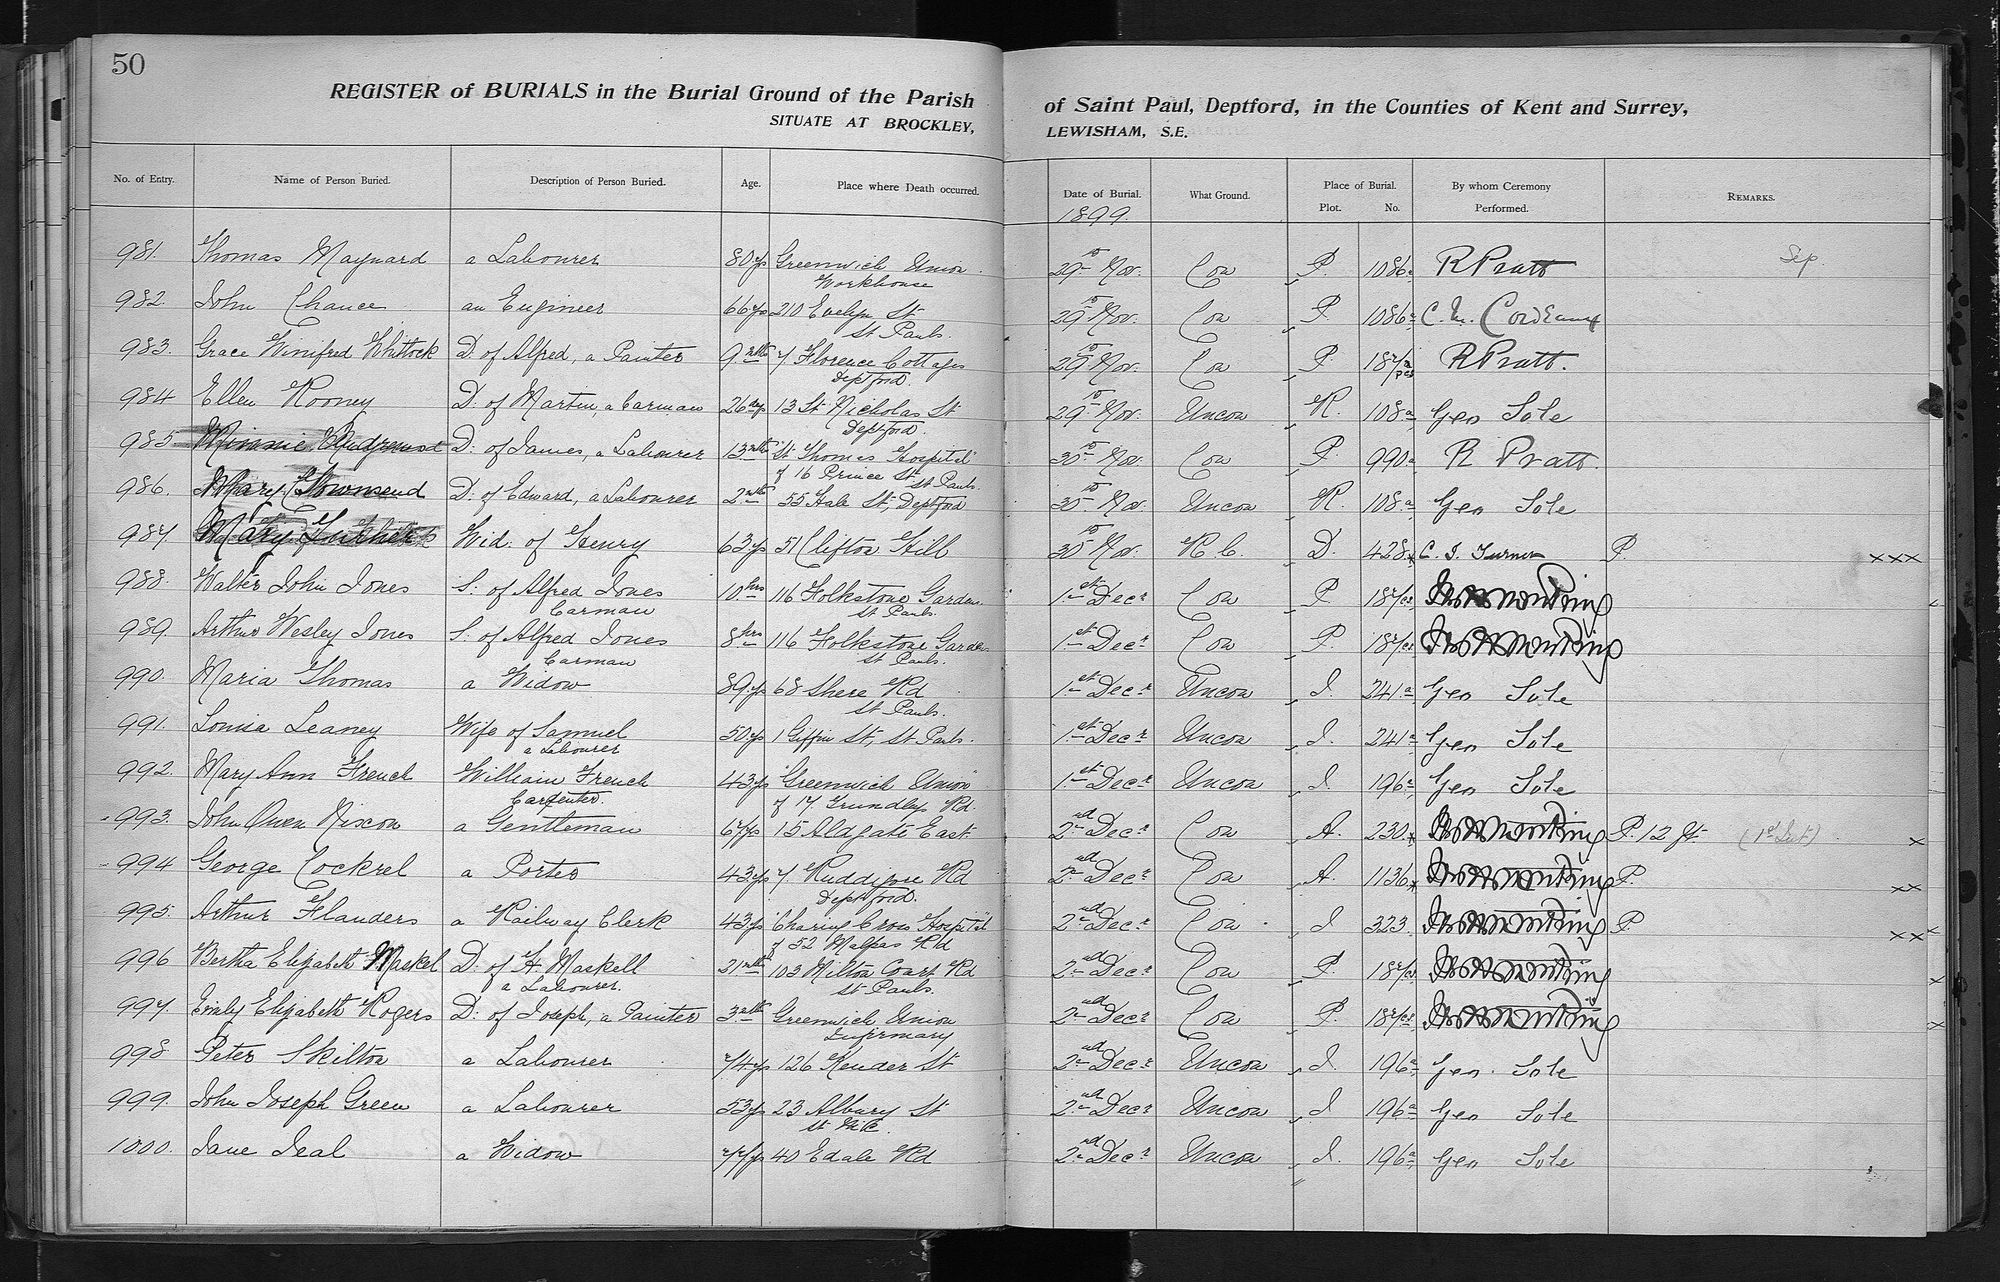 50
REGISTER of BURIALS in the Burial Ground of the Parish of Saint Paul, Deptford, in the Counties of Kent and Surrey,
SITUATE AT BROCKLEY, LEWISHAM, S.E.
No. of Entry. Name of Person Buried. Description of Person Buried. Age. Place where Death occurred. Date of Burial. What Ground. Place of Burial. By whom Ceremony Remarks.
1899. Plot. No. Performed.
981. Thomas Maynard a Labourer 80 ys Greenwich Union 29th Nov. Con P. 1086a R Pratt Sep
Workhouse
982. John Chance an Engineer 66 ys 210 Evelyn St 29th Nov. Con P. 1086a C. M.
St Pauls.
983. Grace Winifred Whitlock D. of Alfred, a Painter 9 mths 7 Florence Cottages 29th Nov. Con P. R Pratt.
Deptford.
984 Ellen Rooney D. of Martin, a Carman 26 dys 13 St Nicholas St 29th Nov. Uncon R. 108a Geo Sole
Deptford.
985 Minnie D: of James, a Labourer 13 mths "St Thomas Hospital" 30th Nov. Con P. 990a R Pratt.
of 16 Prince St St Pauls
986. Mary Townsend D: of Edward, a Labourer 2 mths 55 Hale St, Deptford 30th Nov. Uncon R. 108a Geo Sole
987 Mary Wid: of Henry 63 ys 51 Clifton Hill 30th Nov. R C. D. 428 C. J. Turner P. xxx
988. Walter John Jones S: of Alfred Jones 10 hrs 116 Folkstone Garden 1st Decr Con P.
Carman St Pauls.
989. Arthur Wesley Jones S: of Alfred Jones 8 hrs 116 Folkstone Garden 1st Decr Con P.
Carman St Pauls.
990. Maria Thomas a Widow 89 ys 68 Shere Rd 1st Decr Uncon J. 241a Geo Sole
St Pauls.
991. Louisa Leaney Wife of Samuel 50 ys 1 Giffin St, St Pauls. 1st Decr Uncon J. 241a Geo Sole
a Labourer
992. Mary Ann French William French 43 ys "Greenwich Union" 1st Decr Uncon J. 196a Geo Sole
Carpenter. of 17 Grundleys Rd
993. John Owen Nixon a Gentleman 67 ys 15 Aldgate East 2nd Decr Con A. 230 P. 12 ft. x
994 George Cockrel a Porter 43 ys 7. Ruddigore Rd 2nd Decr Con A. 1136 P. xx
Deptford.
995. Arthur Flanders a Railway Clerk 43 ys "Charing Cross Hospital" 2nd Decr Con J 323. P xx
of 52 Malpas Rd
996 Bertha Elizabeth Maskel D: of H Maskell 21 mths 103 Milton Court Rd 2nd Decr Con P. x
a Labourer. St Pauls.
997. Emily Elizabeth Rogers D: of Joseph, a Painter 3 mths Greenwich Union 2nd Decr Con P. x
Infirmary
998 Peter Skilton a Labourer 74 ys 126 Kender St 2nd Decr Uncon J. 196a Geo. Sole
999. John Joseph Green a Labourer 53 ys 23 Albury St 2nd Decr Uncon J 196a Geo Sole
St Nic.
1000. Jane Deal a Widow 77 ys 40 Edale Rd 2nd Decr Uncon J. 196a Geo Sole